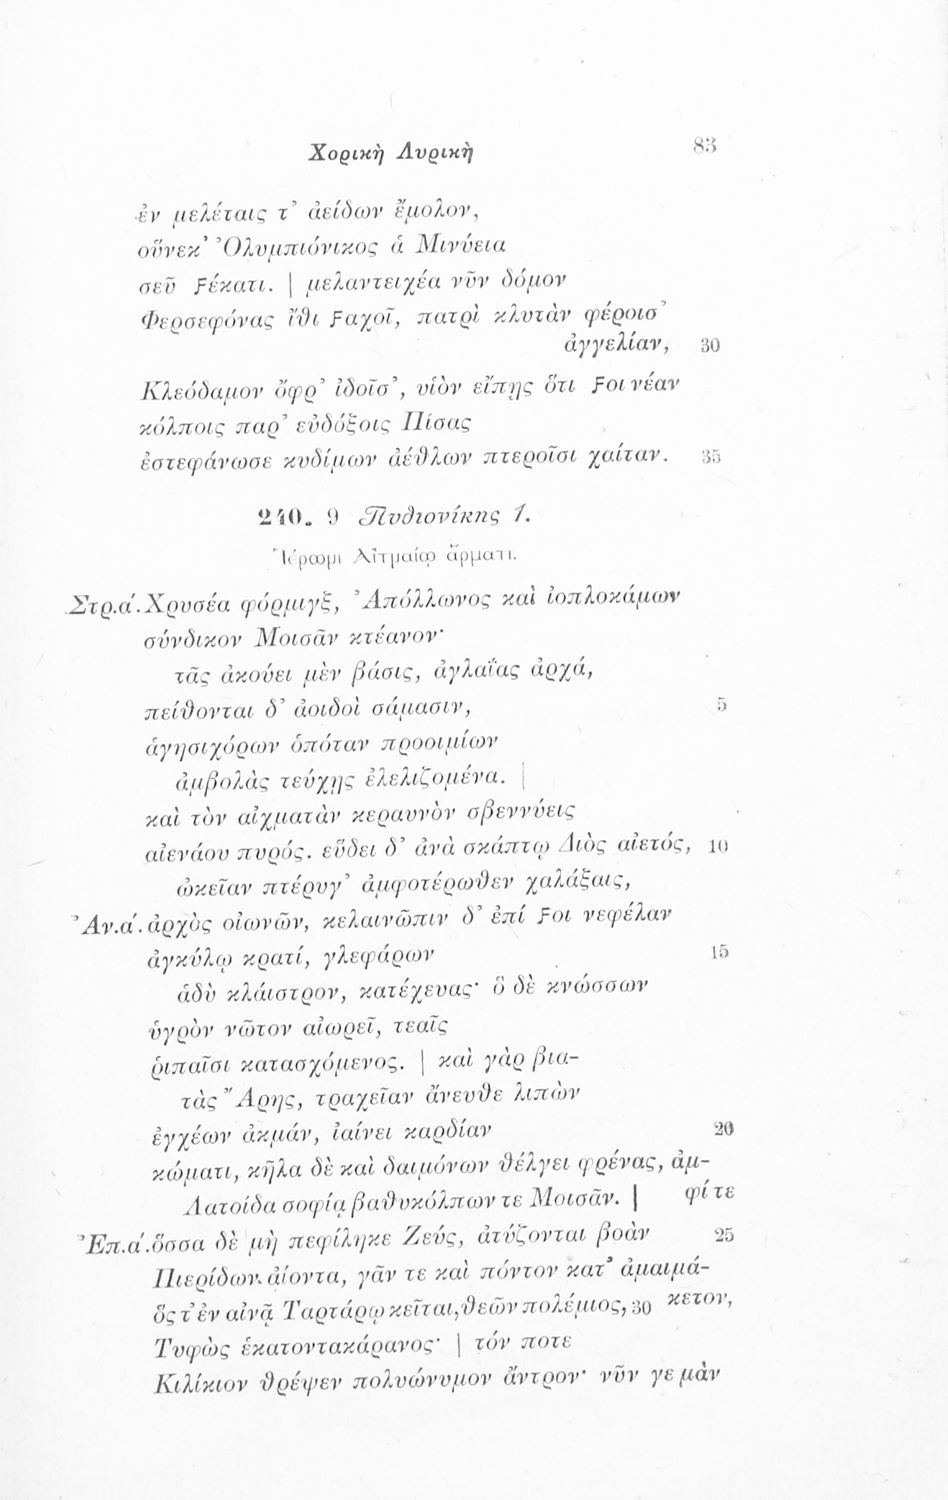 Χορικὴ Λυρικὴ 83
ἐν μελέταις τ’ ἀείδων ἔμολον,
οὕνεκ’ Ὀλυμπιόνικος ἁ Μινύεια
σεῦ ϝέκατι. | μελαντειχέα νῦν δόμον
Φερσεφόνας ἴθι ϝαχοῖ, πατρὶ κλυτὰν φέροισ’
ἀγγελίαν, 30
Κλεόδαμον ὄφρ’ ἰδοῖσ’, υἱὸν εἴπῃς ὅτι ϝοι νέαν
κόλποις παρ’ εὐδόξοις Πίσας
ἐστεφάνωσε κυδίμων ἀέθλων πτεροῖσι χαίταν. 35
240. 9 Πυθιονίκης 1.
Ἱέρωμι Αἰτμαίῳ ἅρματι.
Στρ.α΄. Χρυσέα φόρμιγξ, Ἀπόλλωνος καὶ ἰοπλοκάμων
σύνδικον Μοισᾶν κτέανον·
τᾶς ἀκούει μὲν βάσις, ἀγλαΐας ἀρχά,
πείθονται δ’ ἀοιδοὶ σάμασιν, 5
ἁγησιχόρων ὁπόταν προοιμίων
ἀμβολὰς τεύχῃς ἐλελιζομένα. |
καὶ τὸν αἰχματὰν κεραυνὸν σβεννύεις
αἰενάου πυρός. εὕδει δ’ ἀνὰ σκάπτῳ Διὸς αἰετός, 10
ὠκεῖαν πτέρυγ’ ἀμφοτέρωθεν χαλάξαις,
Ἀν.α΄. ἀρχὸς οἰωνῶν, κελαινῶπιν δ’ ἐπί ϝοι νεφέλαν
ἀγκύλῳ κρατί, γλεφάρων 15
ἁδὺ κλάιστρον, κατέχευας· ὃ δὲ κνώσσων
ὑγρὸν νῶτον αἰωρεῖ, τεαῖς
ῥιπαῖσι κατασχόμενος. | καὶ γὰρ βια-
τὰς Ἄρης, τραχεῖαν ἄνευθε λιπὼν
ἐγχέων ἀκμάν, ἰαίνει καρδίαν 20
κώματι, κῆλα δὲ καὶ δαιμόνων θέλγει φρένας, ἀμ-
Λατοίδα σοφίᾳ βαθυκόλπων τε Μοισᾶν. | φί τε
Ἐπ.α΄. ὅσσα δὲ μὴ πεφίληκε Ζεύς, ἀτύζονται βοὰν 25
Πιερίδων ἀίοντα, γᾶν τε καὶ πόντον κατ’ ἀμαιμά-
ὅς τ’ ἐν αἰνᾷ Ταρτάρῳ κεῖται, θεῶν πολέμιος, 30 κετον,
Τυφὼς ἑκατοντακάρανος· | τόν ποτε
Κιλίκιον θρέψεν πολυώνυμον ἄντρον· νῦν γε μὰν